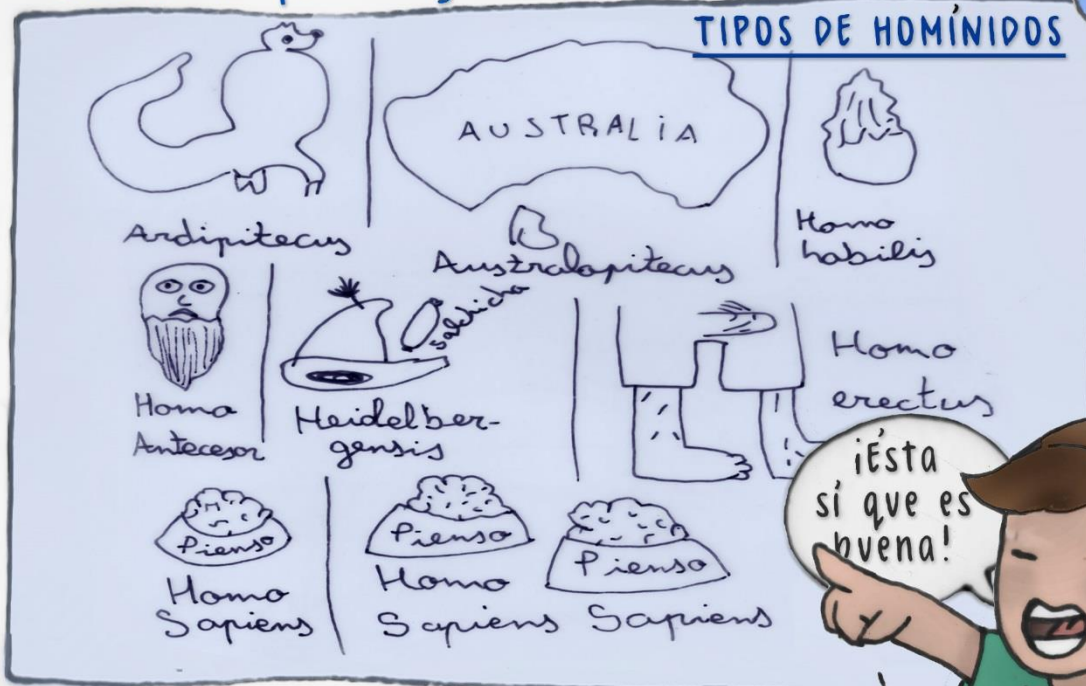 TIPOS DE HOMÍNIDOS
AUSTRALIA
Ardipitecus
Australopitecus
Homo
habilis
Homo
Antecesor
salchicha
Heidelber-
gensis
Homo
erectus
¡Ésta
sí que es
buena!
Pienso
Homo
Sapiens
Pienso
Pienso
Homo
Sapiens Sapiens